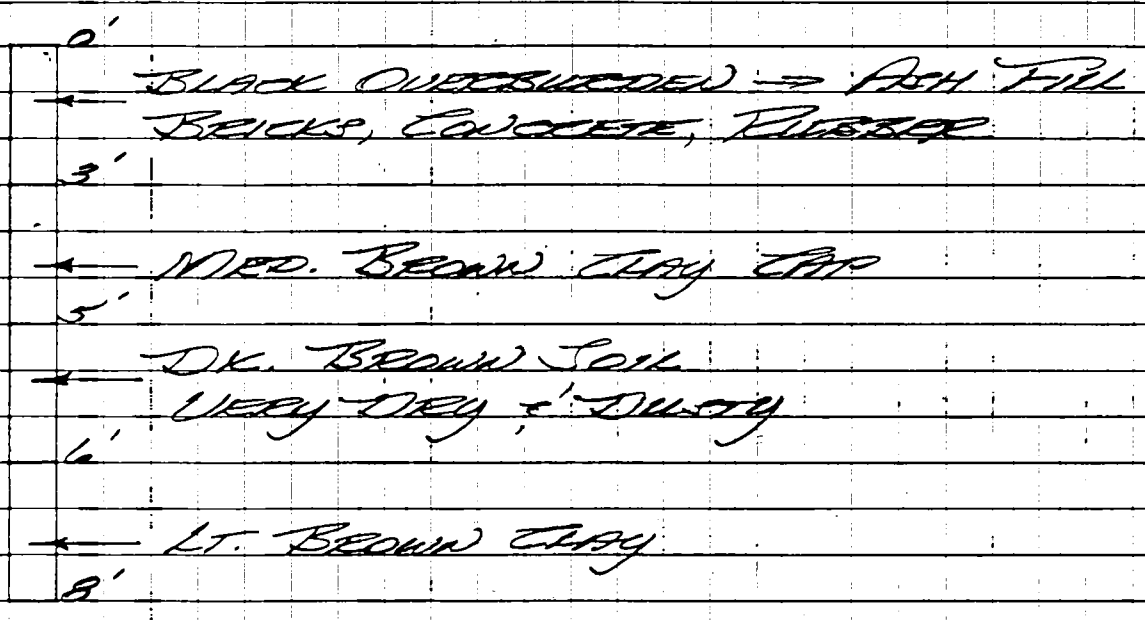 0'
BLACK OVERBURDEN → ASH FILL
BRICKS, CONCRETE, RUBBER
3'
MED. BROWN CLAY CAP
5'
DK. BROWN SOIL
VERY DRY & DUSTY
6'
LT. BROWN CLAY
8'